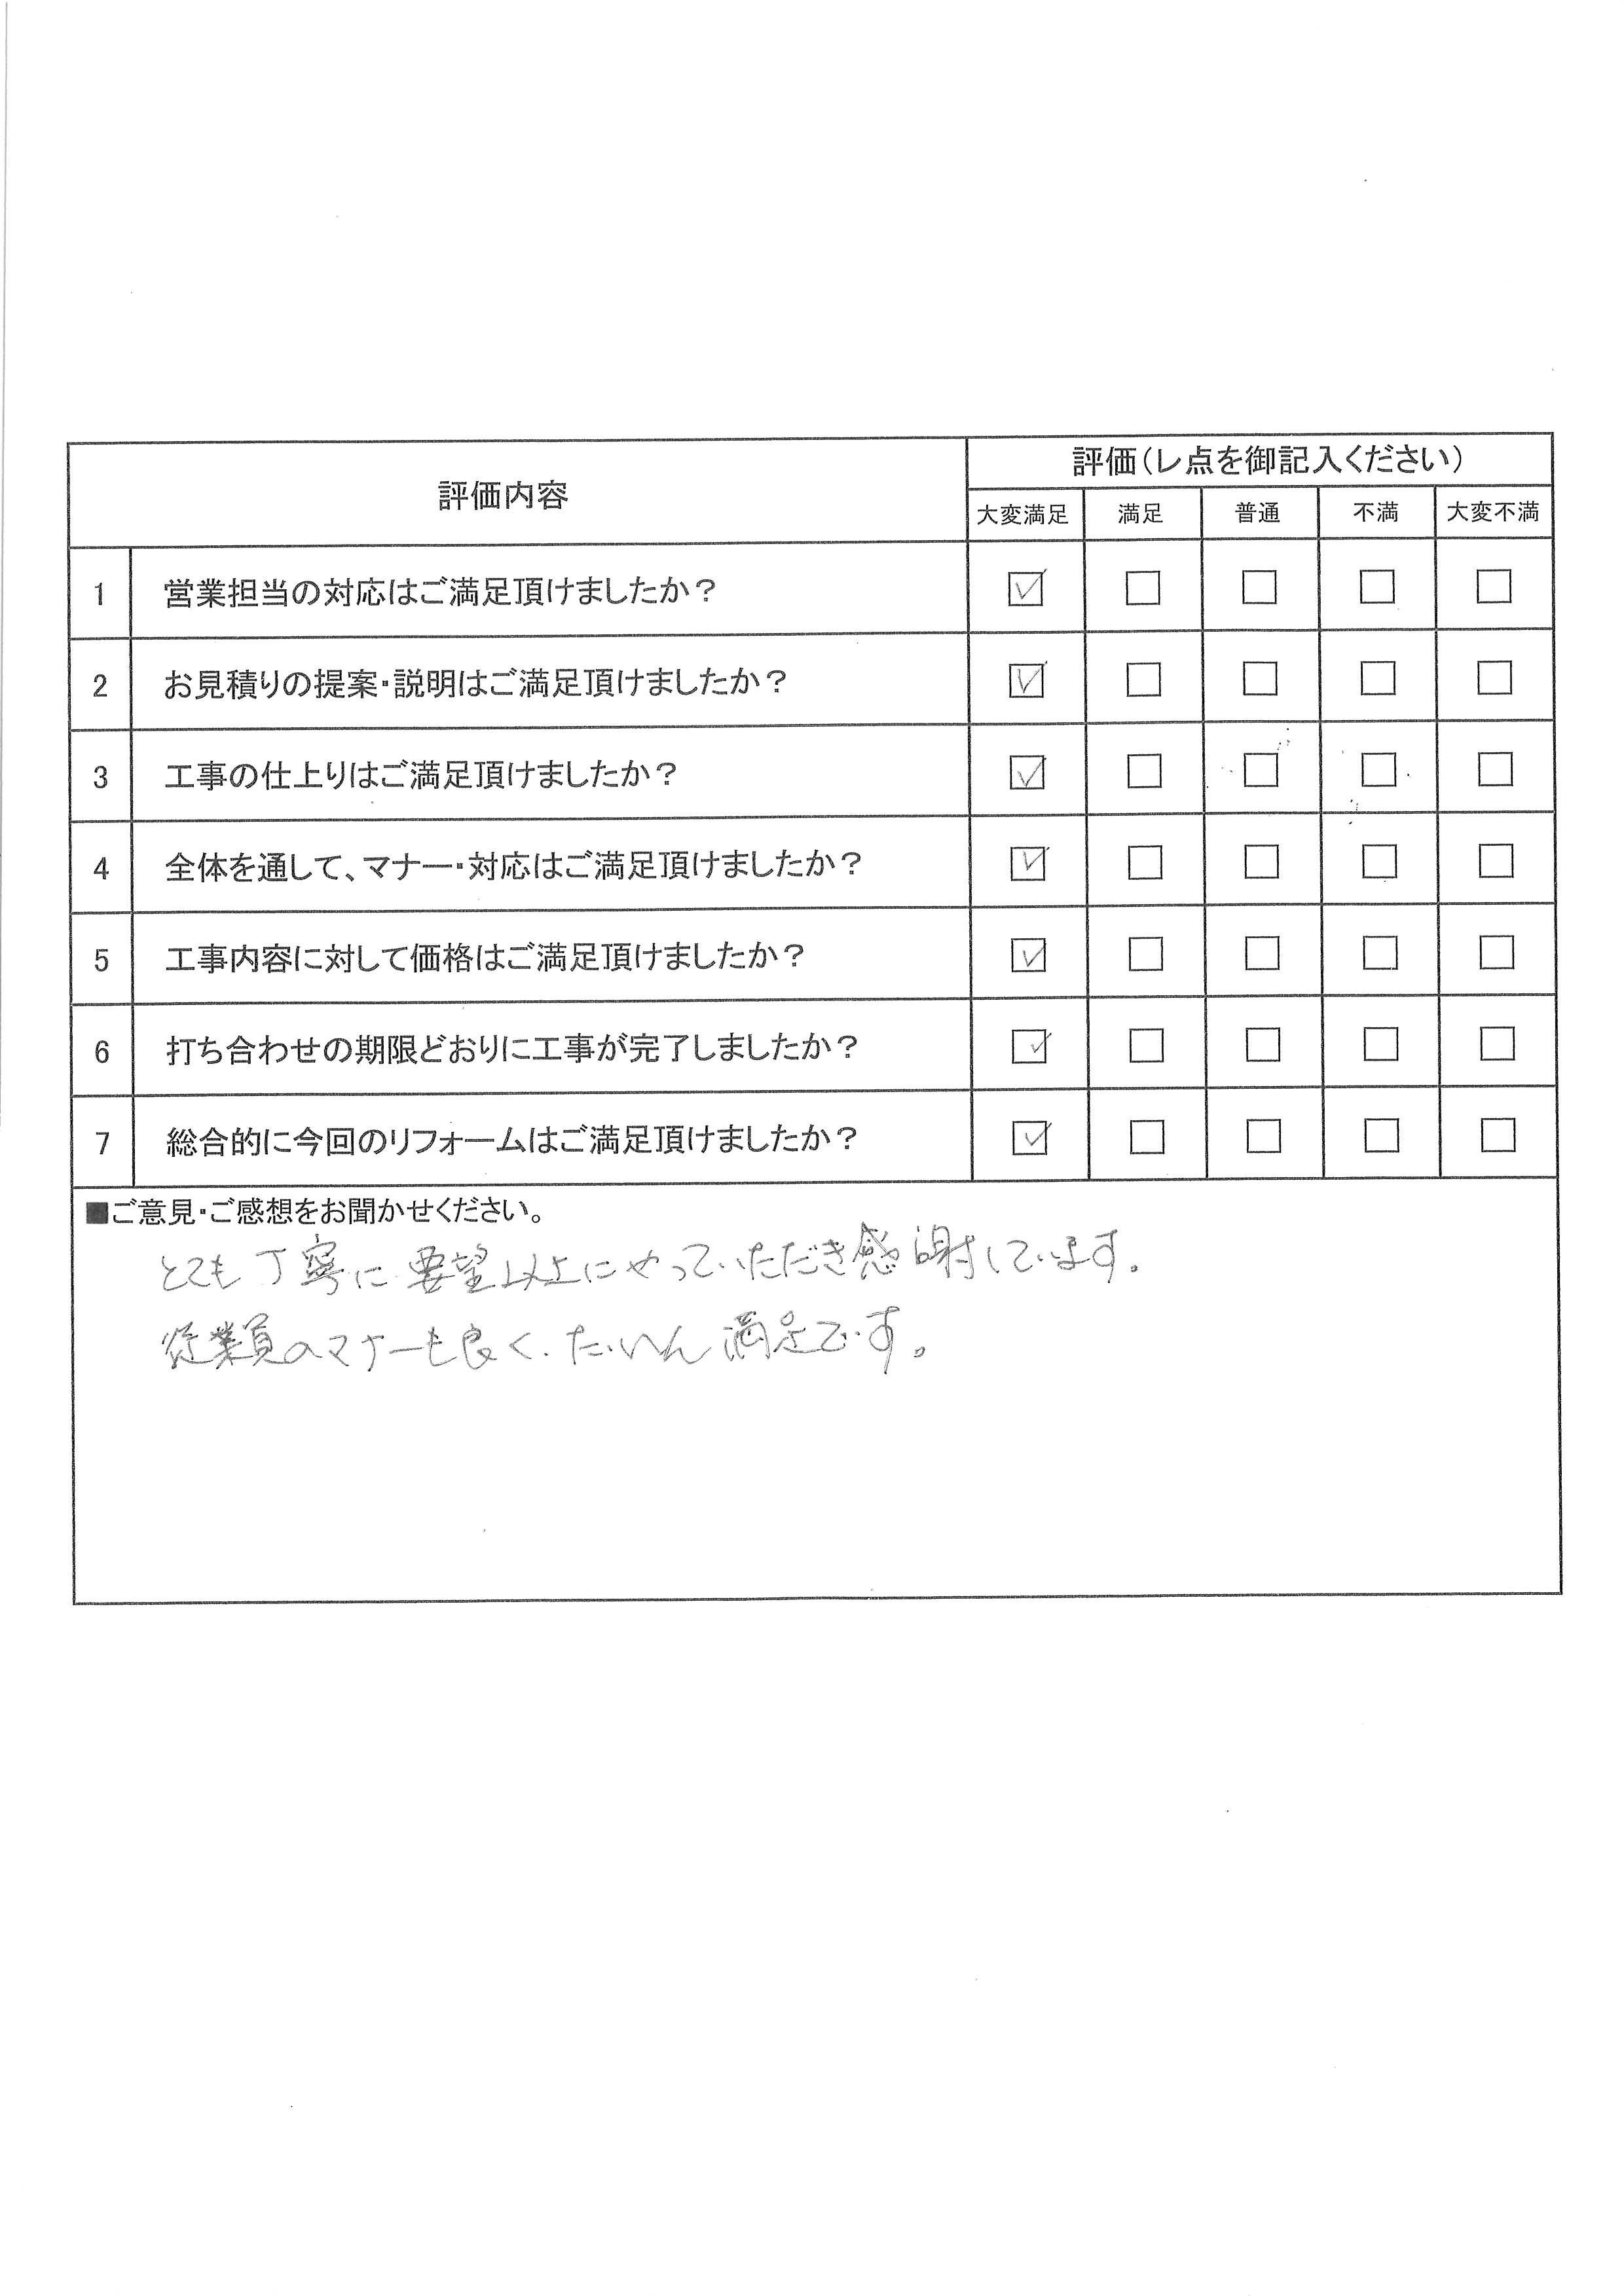 評価内容
評価(レ点を御記入ください)
大変満足 満足 普通 不満 大変不満
1 営業担当の対応はご満足頂けましたか? ☑ □ □ □ □
2 お見積りの提案・説明はご満足頂けましたか? ☑ □ □ □ □
3 工事の仕上りはご満足頂けましたか? ☑ □ □ □ □
4 全体を通して、マナー・対応はご満足頂けましたか? ☑ □ □ □ □
5 工事内容に対して価格はご満足頂けましたか? ☑ □ □ □ □
6 打ち合わせの期限どおりに工事が完了しましたか? ☑ □ □ □ □
7 総合的に今回のリフォームはご満足頂けましたか? ☑ □ □ □ □
■ご意見・ご感想をお聞かせください。
とても丁寧に要望以上にやっていただき感謝しています。
従業員のマナーも良く、たいへん満足です。